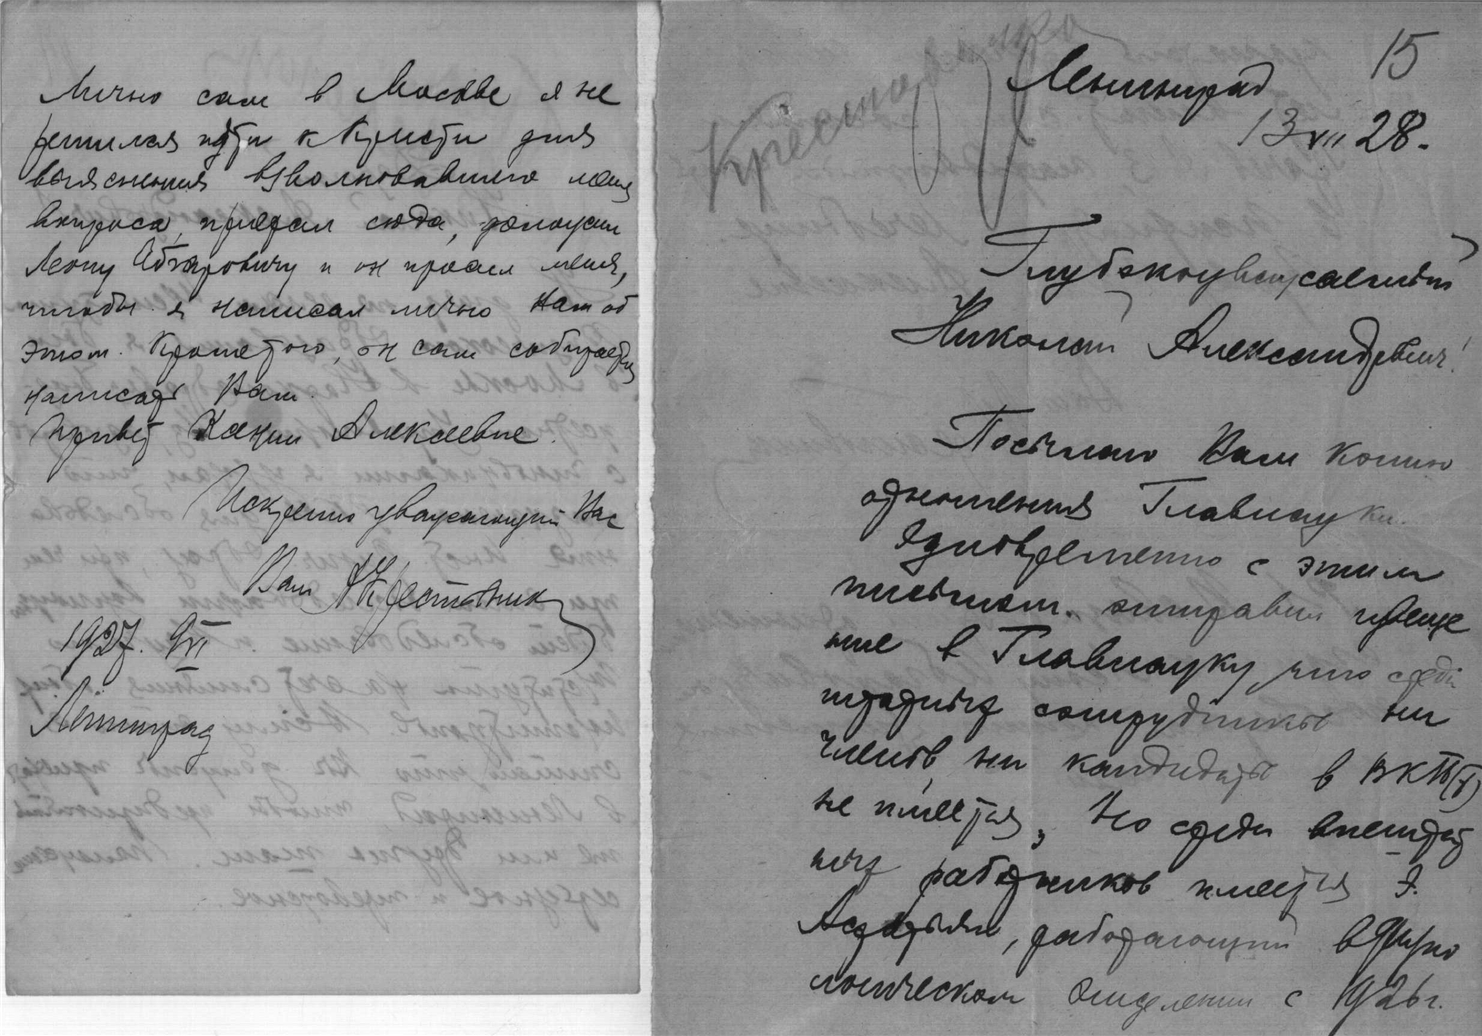 Лично сам в Москве я не
решился идти к Кристи для
выяснения взволновавшего меня
вопроса, приехал сюда, доложил
Леону Абгаровичу и он просил меня,
чтобы я написал лично Вам об
этом. Кроме того, он сам собирается
написать Вам.
Привет Ксении Алексеевне.
Искренно уважающий Вас
Ваш АКрестовник
1927. VI
Ленинград
Крестовника
15
Ленинград
13 VII 28.
Глубокоуважаемый
Николай Александрович!
Посылаю Вам копию
отношения Главнауки.
Одновременно с этим
письмом отправил извеще
ние в Главнауку, что среди
штатных сотрудников ни
членов, ни кандидатов в ВКП(б)
не имеется, но среди внештат
ных работников имеется Э.
Асратьян, работающий в Физио
логическом отделении с 1926 г.